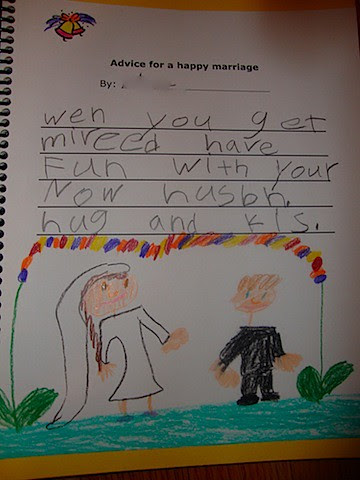 Advice for a happy marriage
By:
wen you get
mireed have
Fun with your
Now husbn.
hug and kis.